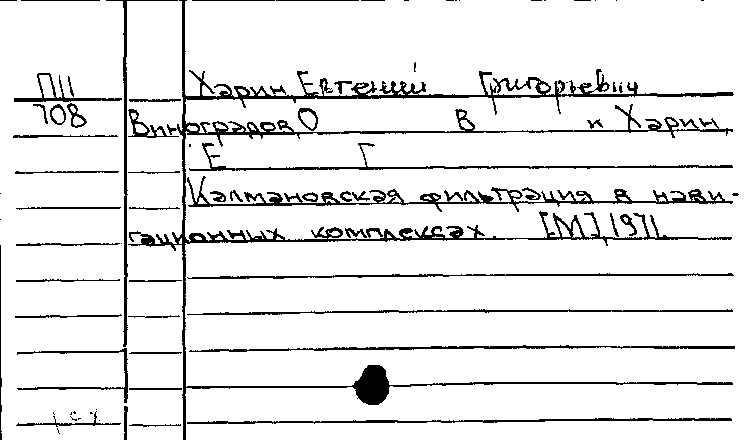 ПIII Харин, Евгений Григорьевич
708 Виноградов, О В и Харин,
Е Г
Калмановская фильтрация в нави-
гационных комплексах. [М], 1971.